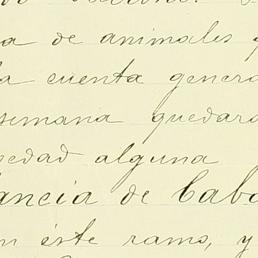 de animales
cuenta genera
semana quedaro
edad alguna
ancia de Caba
éste ramo, y